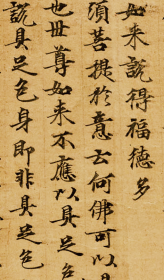 如来說得福德多
須菩提於意云何佛可以具
也世尊如来不應以具足色
說具足色身即非具足色